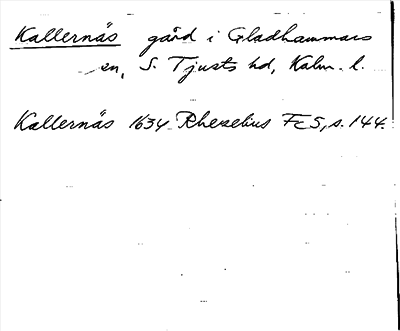 Kallernäs gård i Gladhammars
sn, S. Tjusts hd, Kalm. l.
Kallernäs 1634 Rhezelius FCS, s. 144.